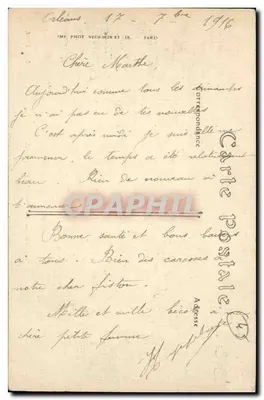 Orléans 17 - 7bre 1916
IMP. PHOT. NEURDEIN ET CIE. PARIS
Chère Marthe
Aujourd'hui comme tous les dimanches
je n'ai pas eu de tes nouvelles
C'est après midi je suis allé me
promener le temps a été relativement
beau. Rien de nouveau à
t'annoncer
Bonne santé et bons baisers
à tous. Bien des caresses à
notre cher fiston.
Mille et mille bécots à
chère petite femme
CARTE POSTALE
Correspondance
Adresse
CPAPHIL